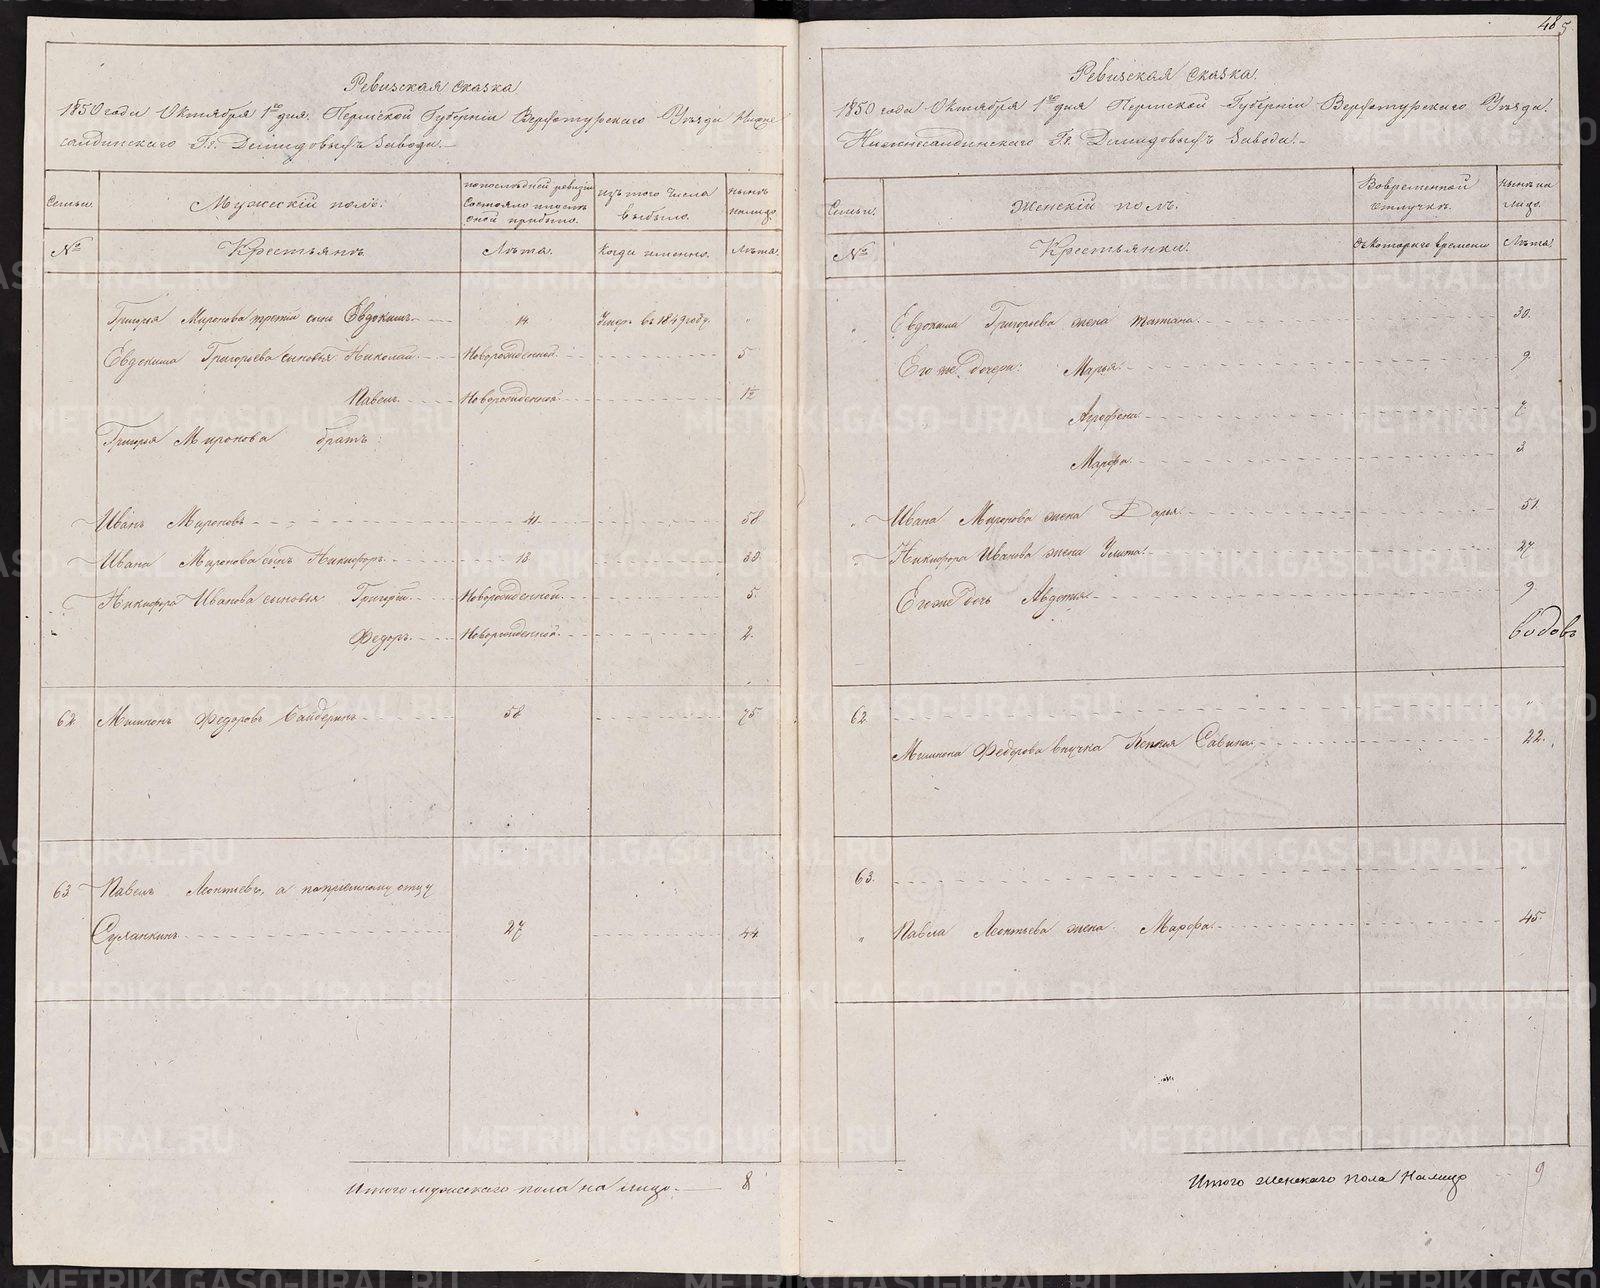 485
Ревизская сказка
1850 года Октября 1го дня. Пермской Губернии Верхотурского Уезда Нижне
салдинского Гг. Демидовыхъ Завода.
Семьи.
Мужескій полъ.
по последней ревизіи состояло и после оной прибыло.
изъ того числа выбыло.
ныне налицо.
№
Крестьянъ
Лѣта.
Когда именно.
Лѣта.
Григорья Миронова третій сынъ Евдокимъ 14. Умеръ въ 1849 году. "
Евдокима Григорьева сыновья: Николай Новорожденной. 5
Павелъ Новорожденной 1/2
Григорья Миронова братъ:
Иванъ Мироновъ 41. 58
Ивана Миронова сынъ Никифоръ 13
Никифора Иванова сыновья Григорій Новорожденной. 5
Федоръ Новорожденной 2.
62. Федоровъ 58 75
63 Павелъ Леонтьевъ, а по приемному отцу
27 44
Итого мужескаго пола на лицо 8
Ревизская сказка.
1850 года Октября 1го дня Пермской Губерніи Верхотурского Уезда.
Нижнесалдинскаго Гг. Демидовыхъ Завода.
Семьи.
Женскій полъ.
Во временной отлучкѣ.
ныне на лицо.
№
Крестьянки.
Съ котораго времени
Лѣта.
" Евдокима Григорьева жена Татьяна 30.
Его же дочери: Марья. 9.
Агрофена 7
Марфа. 3
" Ивана Миронова жена Дарья 51.
" Никифора Иванова жена Улита. 27
Его же дочь Авдотья 9
62. "
Федорова внучка Ксенья Савина. 22.
63. "
" Павла Леонтьева жена Марфа. 45.
Итого женскаго пола налицо 9
METRIKI.GASO-URAL.RU